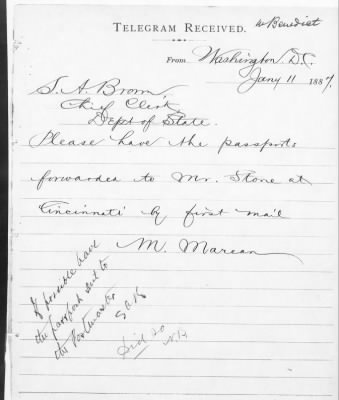 Mr Benedict
TELEGRAM RECEIVED.
From Washington, D.C.
Jany 11 1887.
S. A. Brown,
Chief Clerk,
Dept of State.
Please have the passports
forwarded to Mr. Stone at
Cincinnati by first mail
M. Marean
If possible have
the passport sent to
the Postmaster
SAB
Did so